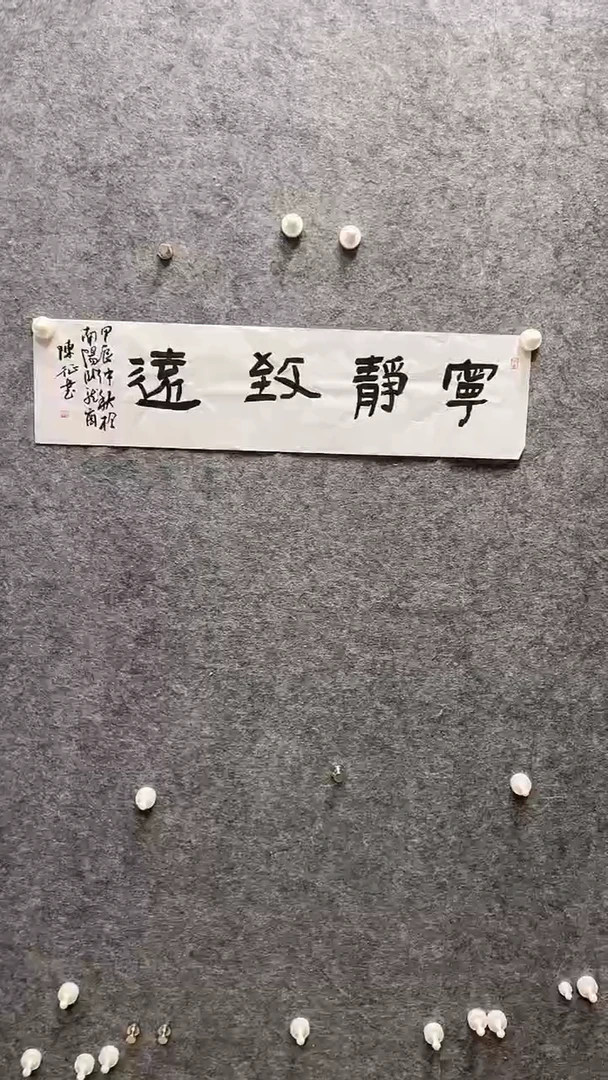 寧靜致遠
甲辰中秋於
南陽臥龍崗
陳征書